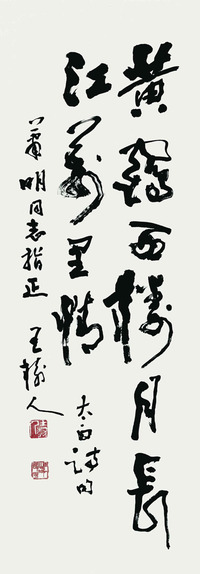 黄鹤西楼月长
江万里情
太白诗句
萧明同志指正
王树人